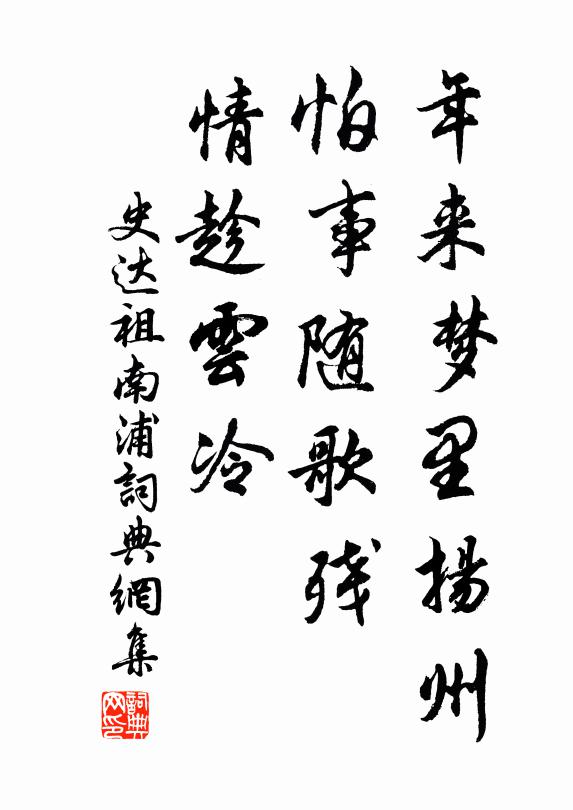 年来梦里揚州
怕事随歌残
情趁雲冷
史达祖南浦詞典網集
詞典网印